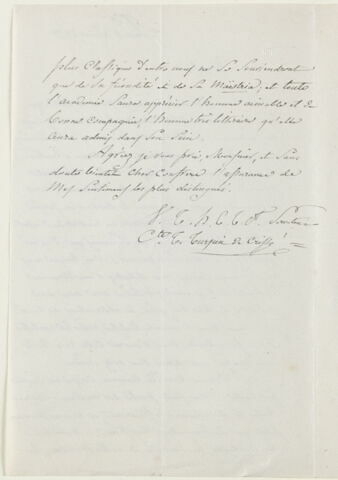 plus classique d'entre nous ne se souviendrait
que de sa fécondité et de sa Maëstria; et toute
l'académie saura apprécier l'homme aimable et de
bonne compagnie, l'homme très lettré qu'elle
aura admis dans son sein.
Agréez je vous prie, Monsieur, et sans
doute bientôt cher confrère l'assurance de
mes sentiments les plus distingués.
V. T. H. E. T. O. Serviteur
Cte T. Turpin de Crissé